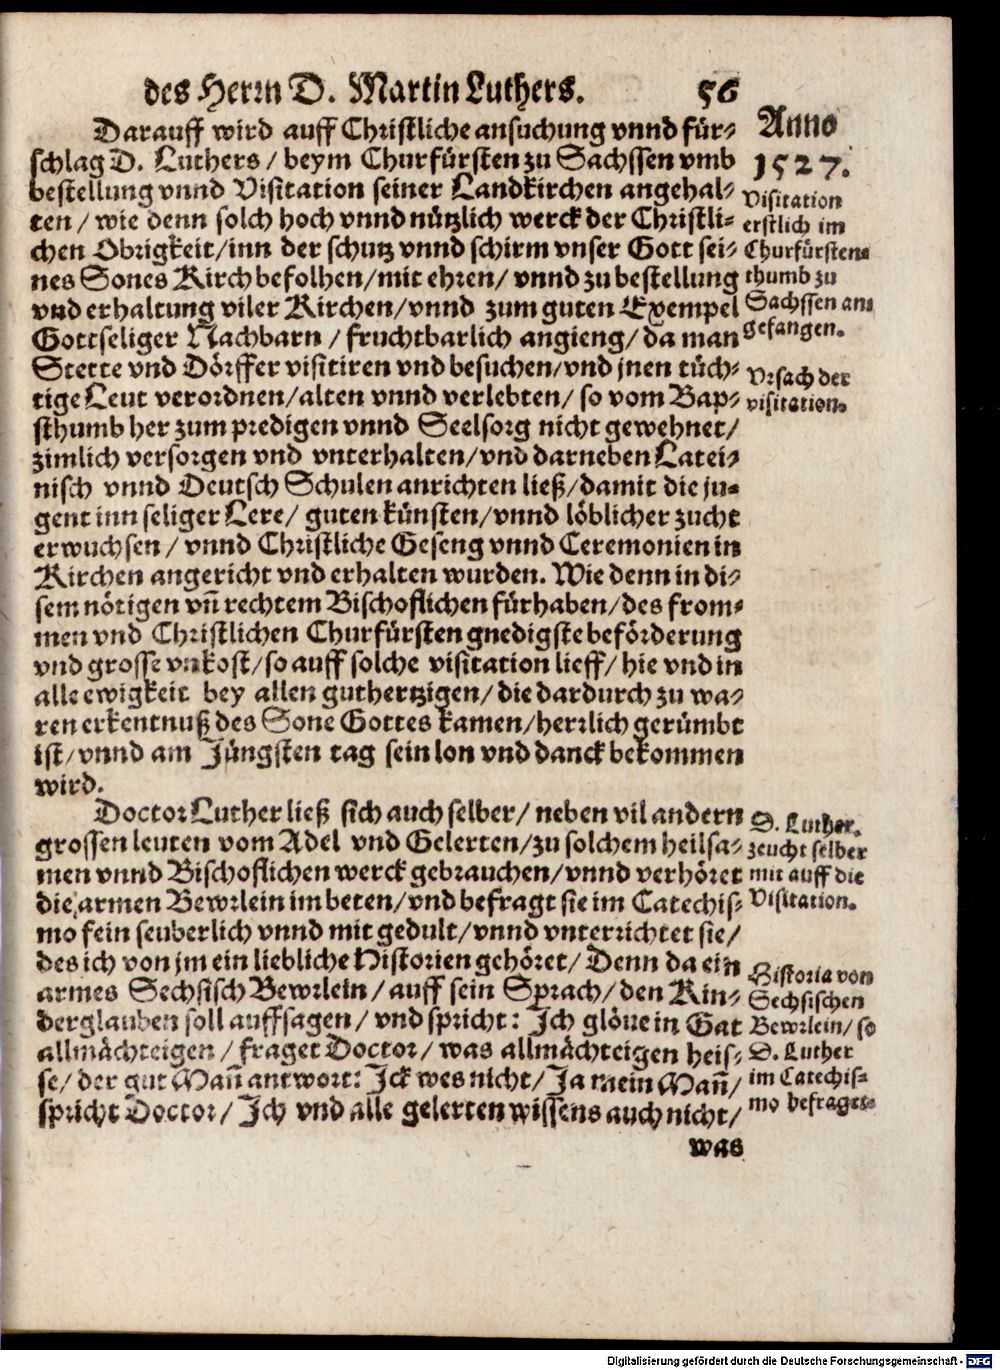 des Herrn D. Martin Luthers. 56
Darauff wird auff Christliche ansuchung vnnd für-
schlag D. Luthers / beym Churfürsten zu Sachssen vmb
bestellung vnnd Visitation seiner Landkirchen angehal-
ten / wie denn solch hoch vnnd nützlich werck der Christli-
chen Obrigkeit/inn der schutz vnnd schirm vnser Gott sei-
nes Sones Kirch befolhen/mit ehren/ vnnd zu bestellung
vnd erhaltung viler Kirchen/vnnd zum guten Exempel
Gottseliger Nachbarn / fruchtbarlich angieng/ da man
Stette vnd Dörffer visitiren vnd besuchen/vnd jnen tüch-
tige Leut verordnen/alten vnnd verlebten/ so vom Bap-
sthumb her zum predigen vnnd Seelsorg nicht gewehnet/
zimlich versorgen vnd vnterhalten/vnd darneben Latei-
nisch vnnd Deutsch Schulen anrichten ließ/damit die ju-
gent inn seliger Lere/ guten künsten/vnnd löblicher zucht
erwuchsen / vnnd Christliche Geseng vnnd Ceremonien in
Kirchen angericht vnd erhalten wurden. Wie denn in di-
sem nötigen vñ rechtem Bischoflichen fürhaben/des from-
men vnd Christlichen Churfürsten gnedigste beförderung
vnd grosse vnkost/so auff solche visitation lieff/ hie vnd in
alle ewigkeit bey allen guthertzigen/ die dardurch zu wa-
ren erkentnuß des Sone Gottes kamen/herrlich gerümbt
ist/vnnd am Jüngsten tag sein lon vnd danck bekommen
wird.
Doctor Luther ließ sich auch selber/ neben vil andern
grossen leuten vom Adel vnd Gelerten/zu solchem heilsa-
men vnnd Bischoflichen werck gebrauchen/vnnd verhöret
die armen Bewrlein im beten/vnd befragt sie im Catechis-
mo fein seuberlich vnnd mit gedult/vnnd vnterrichtet sie/
des ich von jm ein liebliche Historien gehöret/ Denn da ein
armes Sechsisch Bewrlein / auff sein Sprach/ den Kin-
derglauben soll auffsagen / vnd spricht: Ich glöue in Gat
allmächteigen / fraget Doctor/ was allmächteigen heis-
se/ der gut Mañ antwort: Ick wes nicht/ Ja mein Mañ/
spricht Doctor/ Ich vnd alle gelerten wissens auch nicht/
was
Anno
1527.
Visitation
erstlich im
Churfürsten-
thumb zu
Sachssen an-
gefangen.
Vrsach der
visitation.
D. Luther
zeucht selber
mit auff die
Visitation.
Historia von
Sechsischen
Bewrlein/ so
D. Luther
im Catechis-
mo befraget.
Digitalisierung gefördert durch die Deutsche Forschungsgemeinschaft - DFG